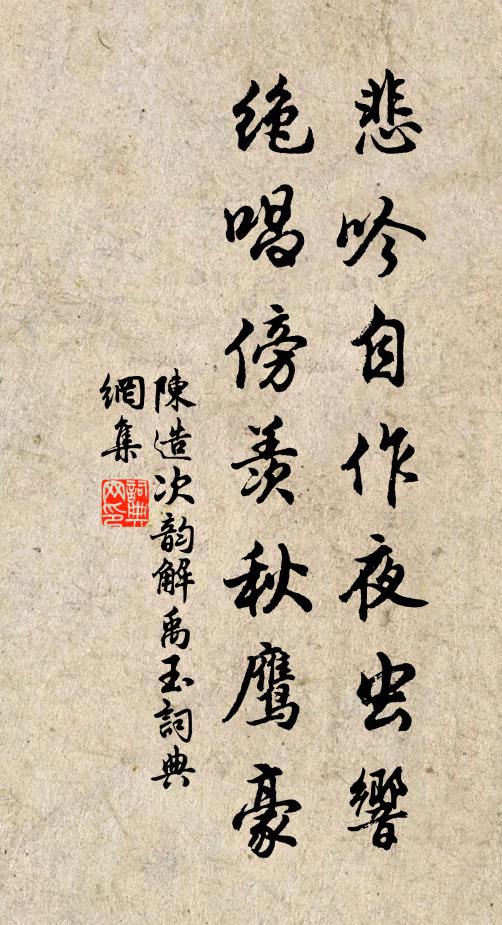 悲吟自作夜虫響
绝唱傍羨秋鷹豪
陳造次韵解禹玉詞典
網集
詞典網印